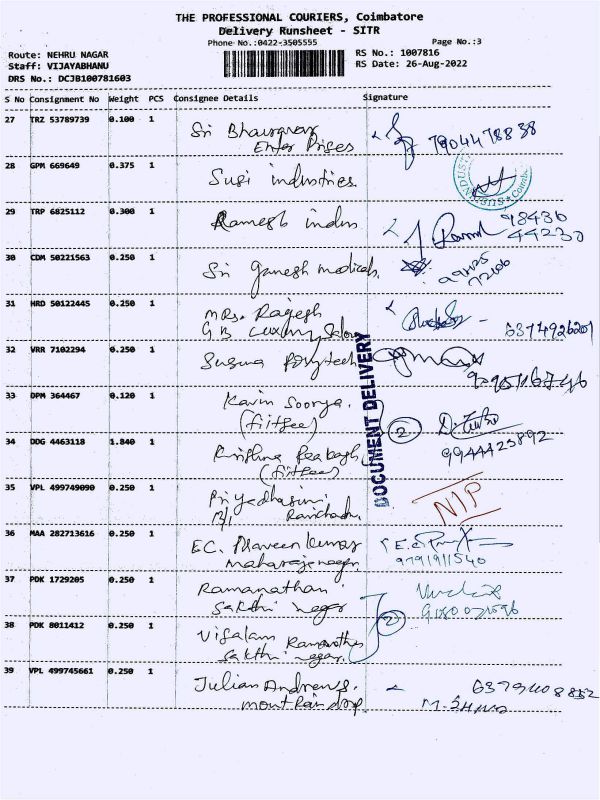 THE PROFESSIONAL COURIERS, Coimbatore
Delivery Runsheet - SITR
Phone No.:0422-3505555
Page No.:3
Route: NEHRU NAGAR
RS No.: 1007816
Staff: VIJAYABHANU
RS Date: 26-Aug-2022
DRS No.: DCJB100781603
S No Consignment No Weight PCS Consignee Details Signature
27 TRZ 53789739 0.100 1 Sri Bhairavar 7904478838
Enter Prises
28 GPM 669649 0.375 1 Susi industries.
29 TRP 6825112 0.300 1 Ramesh indus 98436
44230
30 CDM 50221563 0.250 1 Sri Ganesh medicals
31 HRD 50122445 0.250 1 MRs. Ragesh
G.B. Luxury Salon 6374926201
32 VRR 7102294 0.250 1 Susma Polytech
33 DPM 364467 0.120 1 Kavin Soorya.
(fiitjee) 2
34 DDG 4463118 1.840 1 Krishna 9944425892
(fiitjee)
DOCUMENT DELIVERY
35 VPL 499749090 0.250 1 Priyadhasini NIP
36 MAA 282713616 0.250 1 E.C. Praveen Kumar
Maharaja nagar 9791911540
37 PDK 1729205 0.250 1 Ramanathan
Sakthi nagar
38 PDK 8011412 0.250 1 Visalam Ramanathan 2
Sakthi nagar.
39 VPL 499745661 0.250 1 Julian Andrews. 6379408852